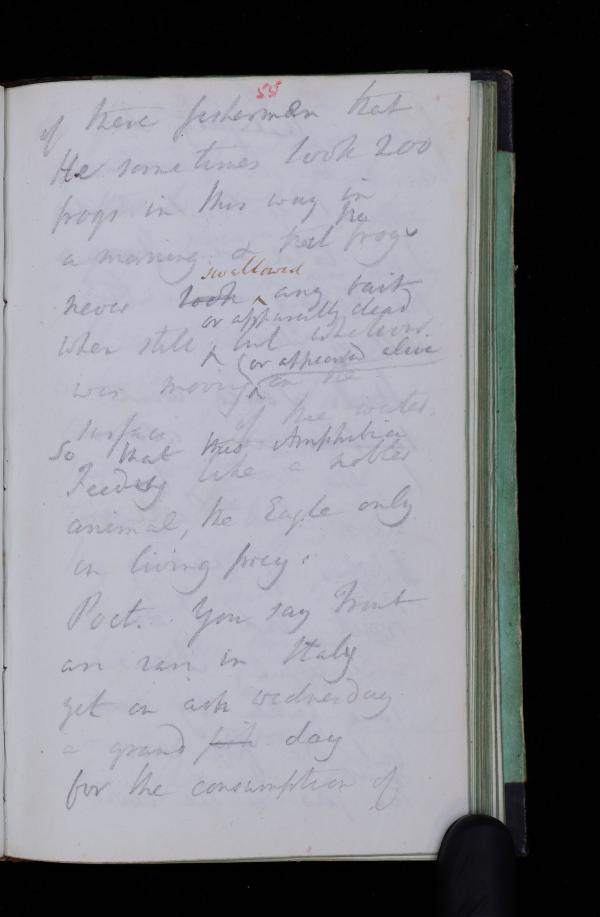 55
of these fishermen that
He sometimes took 200
frogs in this way in
a morning & that the frogs
never took swallowed any bait
when still or apparently dead but whatever
was moving (or appeared alive on the
surface of the water.
So that this Amphibia
Feeding like a nobler
animal, the Eagle only
on living prey.
Poet. You say Trout
are rare in Italy
yet on ash wednesday
a grand fish day
for the consumption of